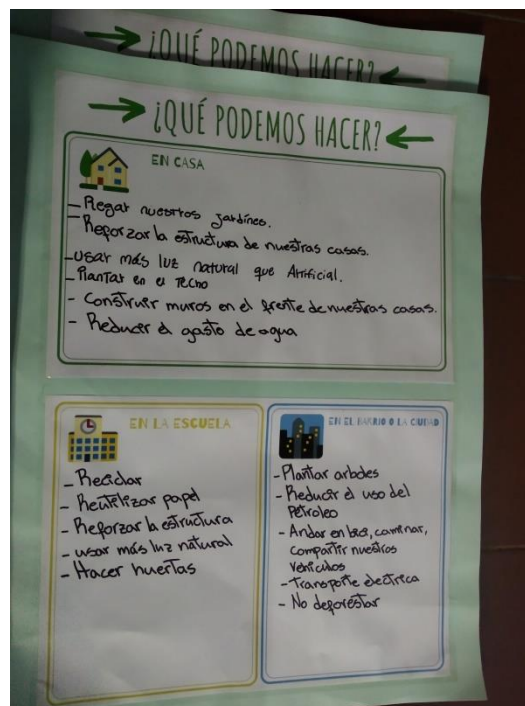 ¿QUÉ PODEMOS HACER?
¿QUÉ PODEMOS HACER?
EN CASA
- Regar nuestros jardínes.
- Reforzar la estructura de nuestras casas.
- usar más luz natural que Artificial.
- Plantar en el Techo
- Construir muros en el frente de nuestras casas.
- Reducir el gasto de agua
EN LA ESCUELA
- Reciclar
- Reutilizar papel
- Reforzar la estructura
- usar más luz natural
- Hacer huertas
EN EL BARRIO O LA CIUDAD
- Plantar arboles
- Reducir el uso del
Petroleo
- Andar en bici, caminar,
compartir nuestros
vehículos
- Transporte electrica
- No deforestar